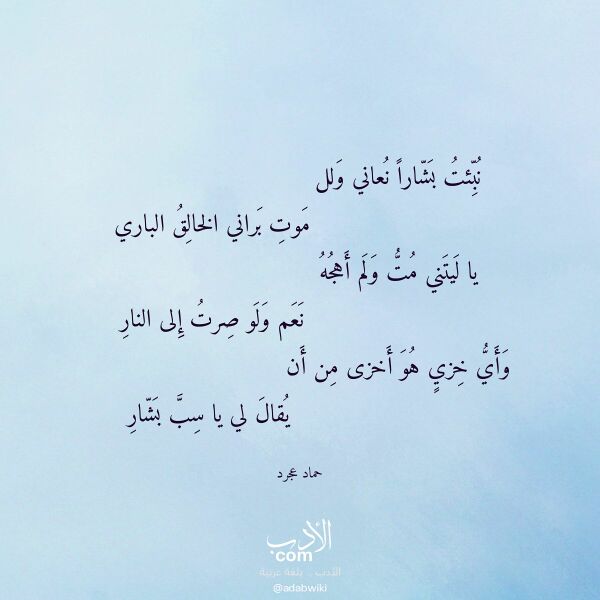 نُبِّئتُ بَشّاراً نُعاني وَلل
مَوتِ بَراني الخالِقُ الباري
يا لَيتَني مُتُّ وَلَم أَهجُهُ
نَعَم وَلَو صِرتُ إِلى النارِ
وَأَيُّ خِزيٍ هُوَ أَخزى مِن أَن
يُقالَ لي يا سِبَّ بَشّارِ
حماد عجرد
الأدب
com
الأدب .. بلغة عربية
@adabwiki